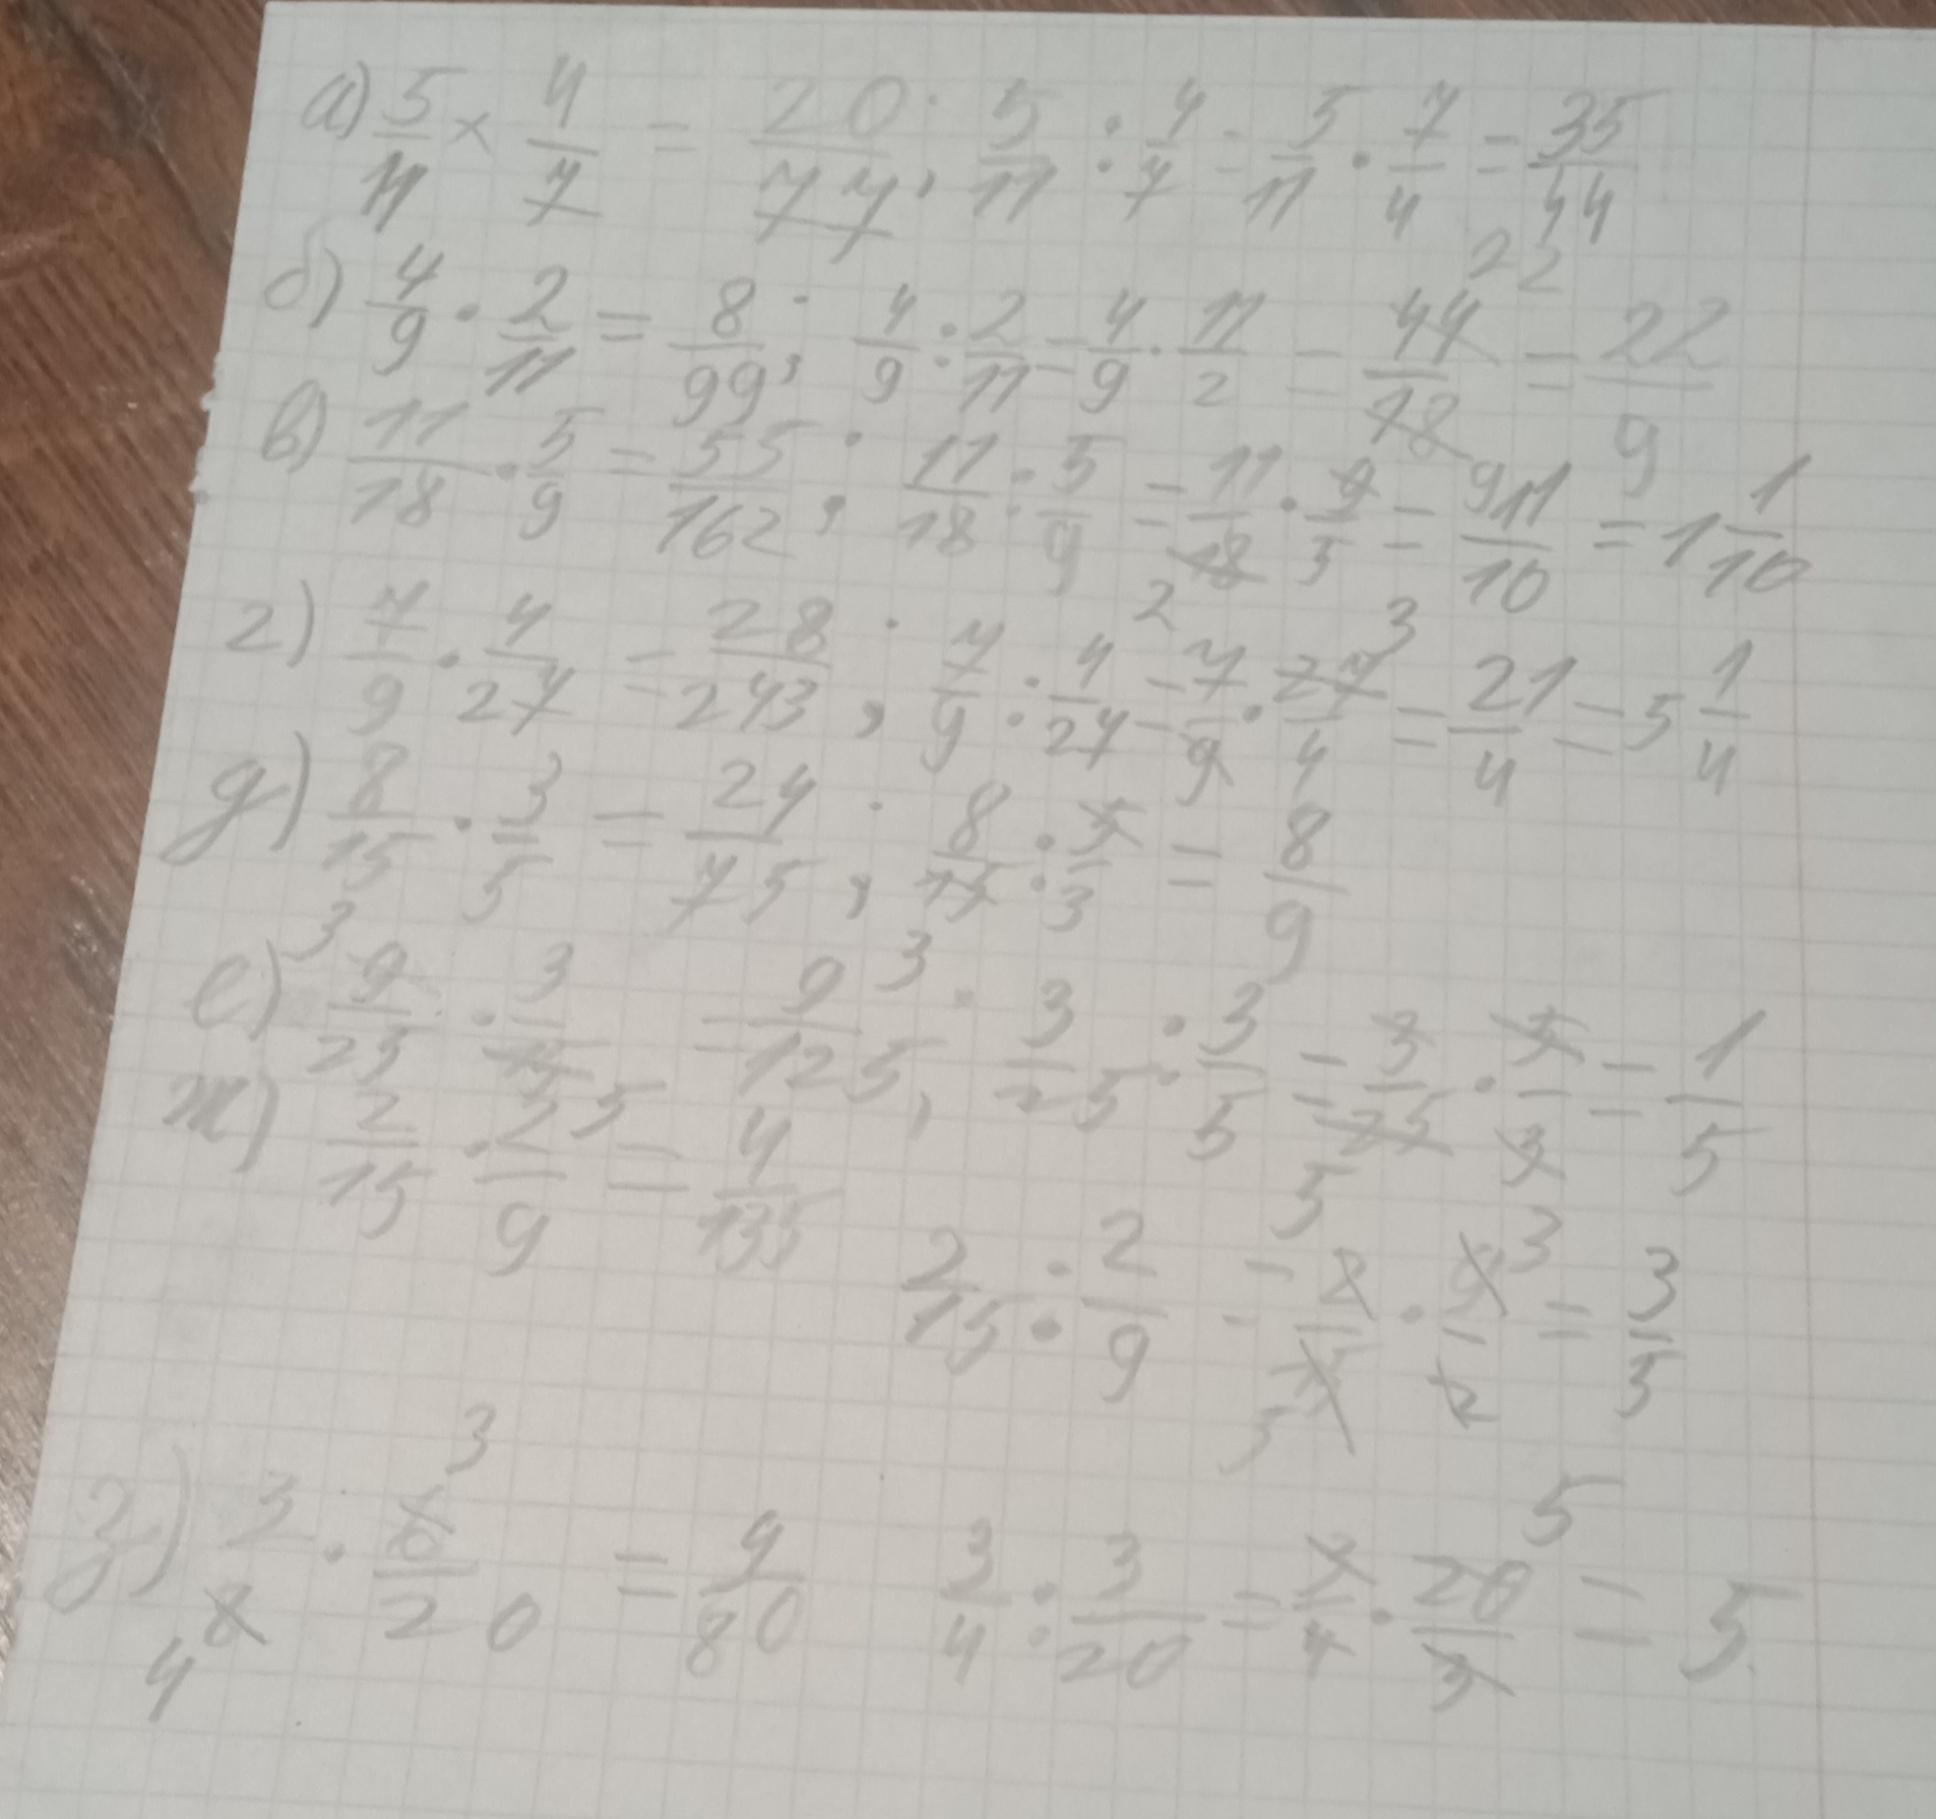 а) 5/11 × 4/7 = 20/77; 5/11 : 4/7 = 5/11 · 7/4 = 35/44
б) 4/9 · 2/11 = 8/99; 4/9 : 2/11 = 4/9 · 11/2 = 44/18 22 9 = 22/9
в) 11/18 · 5/9 = 55/162; 11/18 : 5/9 = 11/18 2 · 9/5 = 11/10 = 1 1/10
г) 7/9 · 4/27 = 28/243; 7/9 : 4/27 = 7/9 · 27/4 3 = 21/4 = 5 1/4
д) 8/15 · 3/5 = 24/75; 8/15 : 5/3 = 8/9
е) 3 9/25 · 3/15 5 = 9/125 3; 3/25 : 3/5 = 3/25 5 · 5/3 = 1/5
ж) 2/15 · 2/9 = 4/135
2/15 : 2/9 = 2/15 5 · 9/2 3 = 3/5
з) 3/8 4 · 6/20 3 = 9/80 3/4 : 3/20 = 3/4 · 20/3 5 = 5